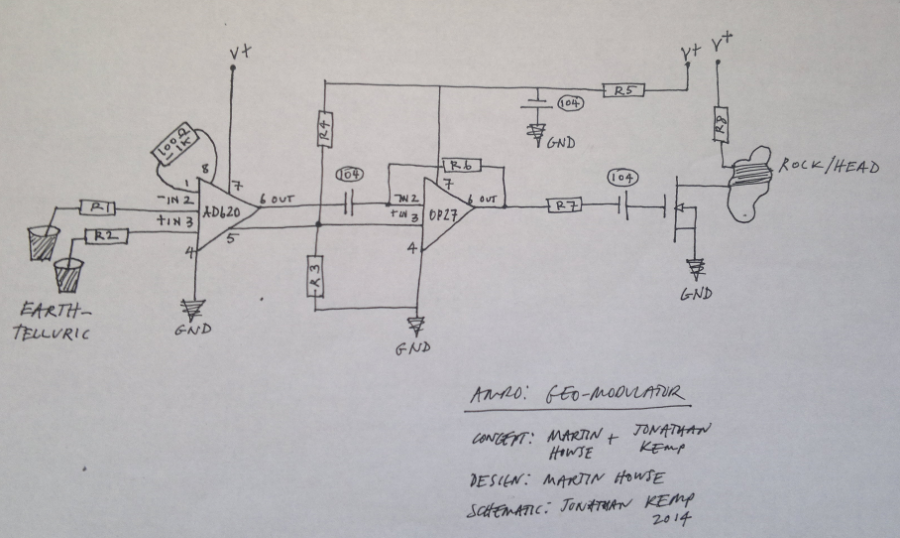 V+
V+
V+
R5
104
GND
R4
R8
100Ω
-1K
8
7
1
-IN 2
+IN 3
AD620
6 OUT
5
4
R1
R2
EARTH-
TELLURIC
GND
104
R6
7
-IN 2
+IN 3
OP27
6 OUT
4
R3
GND
R7
104
ROCK/HEAD
GND
GEO-MODULATOR
CONCEPT: MARTIN + JONATHAN
HOWSE KEMP
DESIGN: MARTIN HOWSE
SCHEMATIC: JONATHAN KEMP
2014